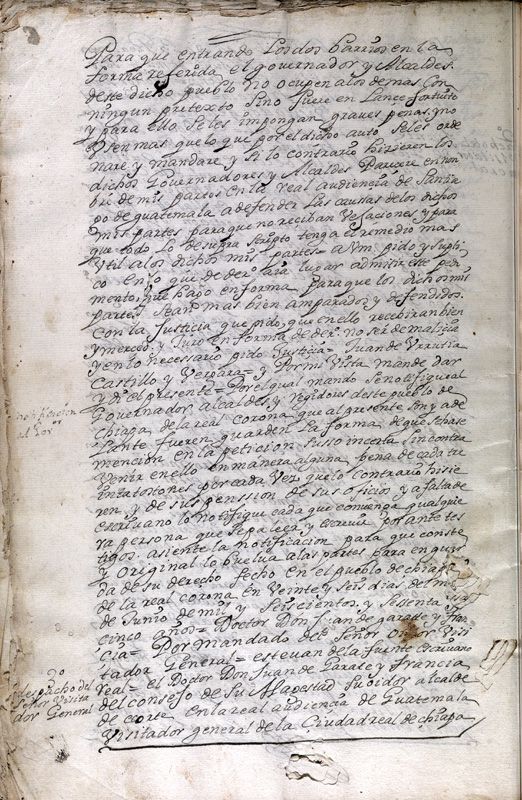 Para que entrando los dos barrios en la
forma referida el governador y Alcaldes
deste dicho pueblo no ocupen a los demas con
ningun pretexto sino fuere en lance fortuito
y para ello se les impongan graves penas y no
usen mas que lo que por el dicho auto se les orde
nare y mandare y si lo contrario hizieren los
dichos Governadores y Alcaldes Parecere en nom
bre de mis partes en la real audiencia de Santia
go de guatemala a defender las causas de los dichos
mis partes para que no reciban vejaciones y para
que todo lo de supra scripto tenga el remedio mas
util a los dichos mis partes = a Vm. pido y supli
co en lo que de derº aia lugar admitir este pedi
mento, que hago en forma para que los dichos mis
partes, sean mas bien amparados y defendidos
con la Justicia que pido, que en ello recibiran bien
y merced y Juro en forma de derº no ser de malicia
y en lo necessario pido Justicia = Juan de Urrutia
Castillo y Vergara = y Por mi Vista mande dar
y di el presente = Por el qual mando se notifique al
Governador, alcaldes, y regidores deste pueblo de
Chiapa de la real corona que al presente son y ade
lante fueren, guarden la forma, de que se hase
mencion en la peticion suso incerta sin contra
venir en ello en manera alguna, pena de cada tre
inta tostones por cada vez que lo contrario hisie
ren, y de suspenssion de sus oficios y a falta de
escrivano lo notifique cada que convenga qualquie
ra persona que sepa leer y escrivir por ante tes
tigos. asiente la notificacion para que conste
y original lo buelva a las partes para en guar
da de su derecho fecho en el pueblo de chiapa
de la real corona en veinte y seis dias del mes
de Junio de mil y seiscientos, y sessenta y
cinco años = Doctor Don Juan de garate y fran
cia = Por mandado del Señor Oydor Visi
tador General = estevan de la fuente escrivano
real = el Doctor Don Juan de Garate y francia
del consejo de su Magestad su oidor alcalde
de corte en la real audiencia de Guatemala
Visitador general de la Ciudad real de chiapa
notificacion
al Gor
2º
despacho del
Señor Visita
dor General